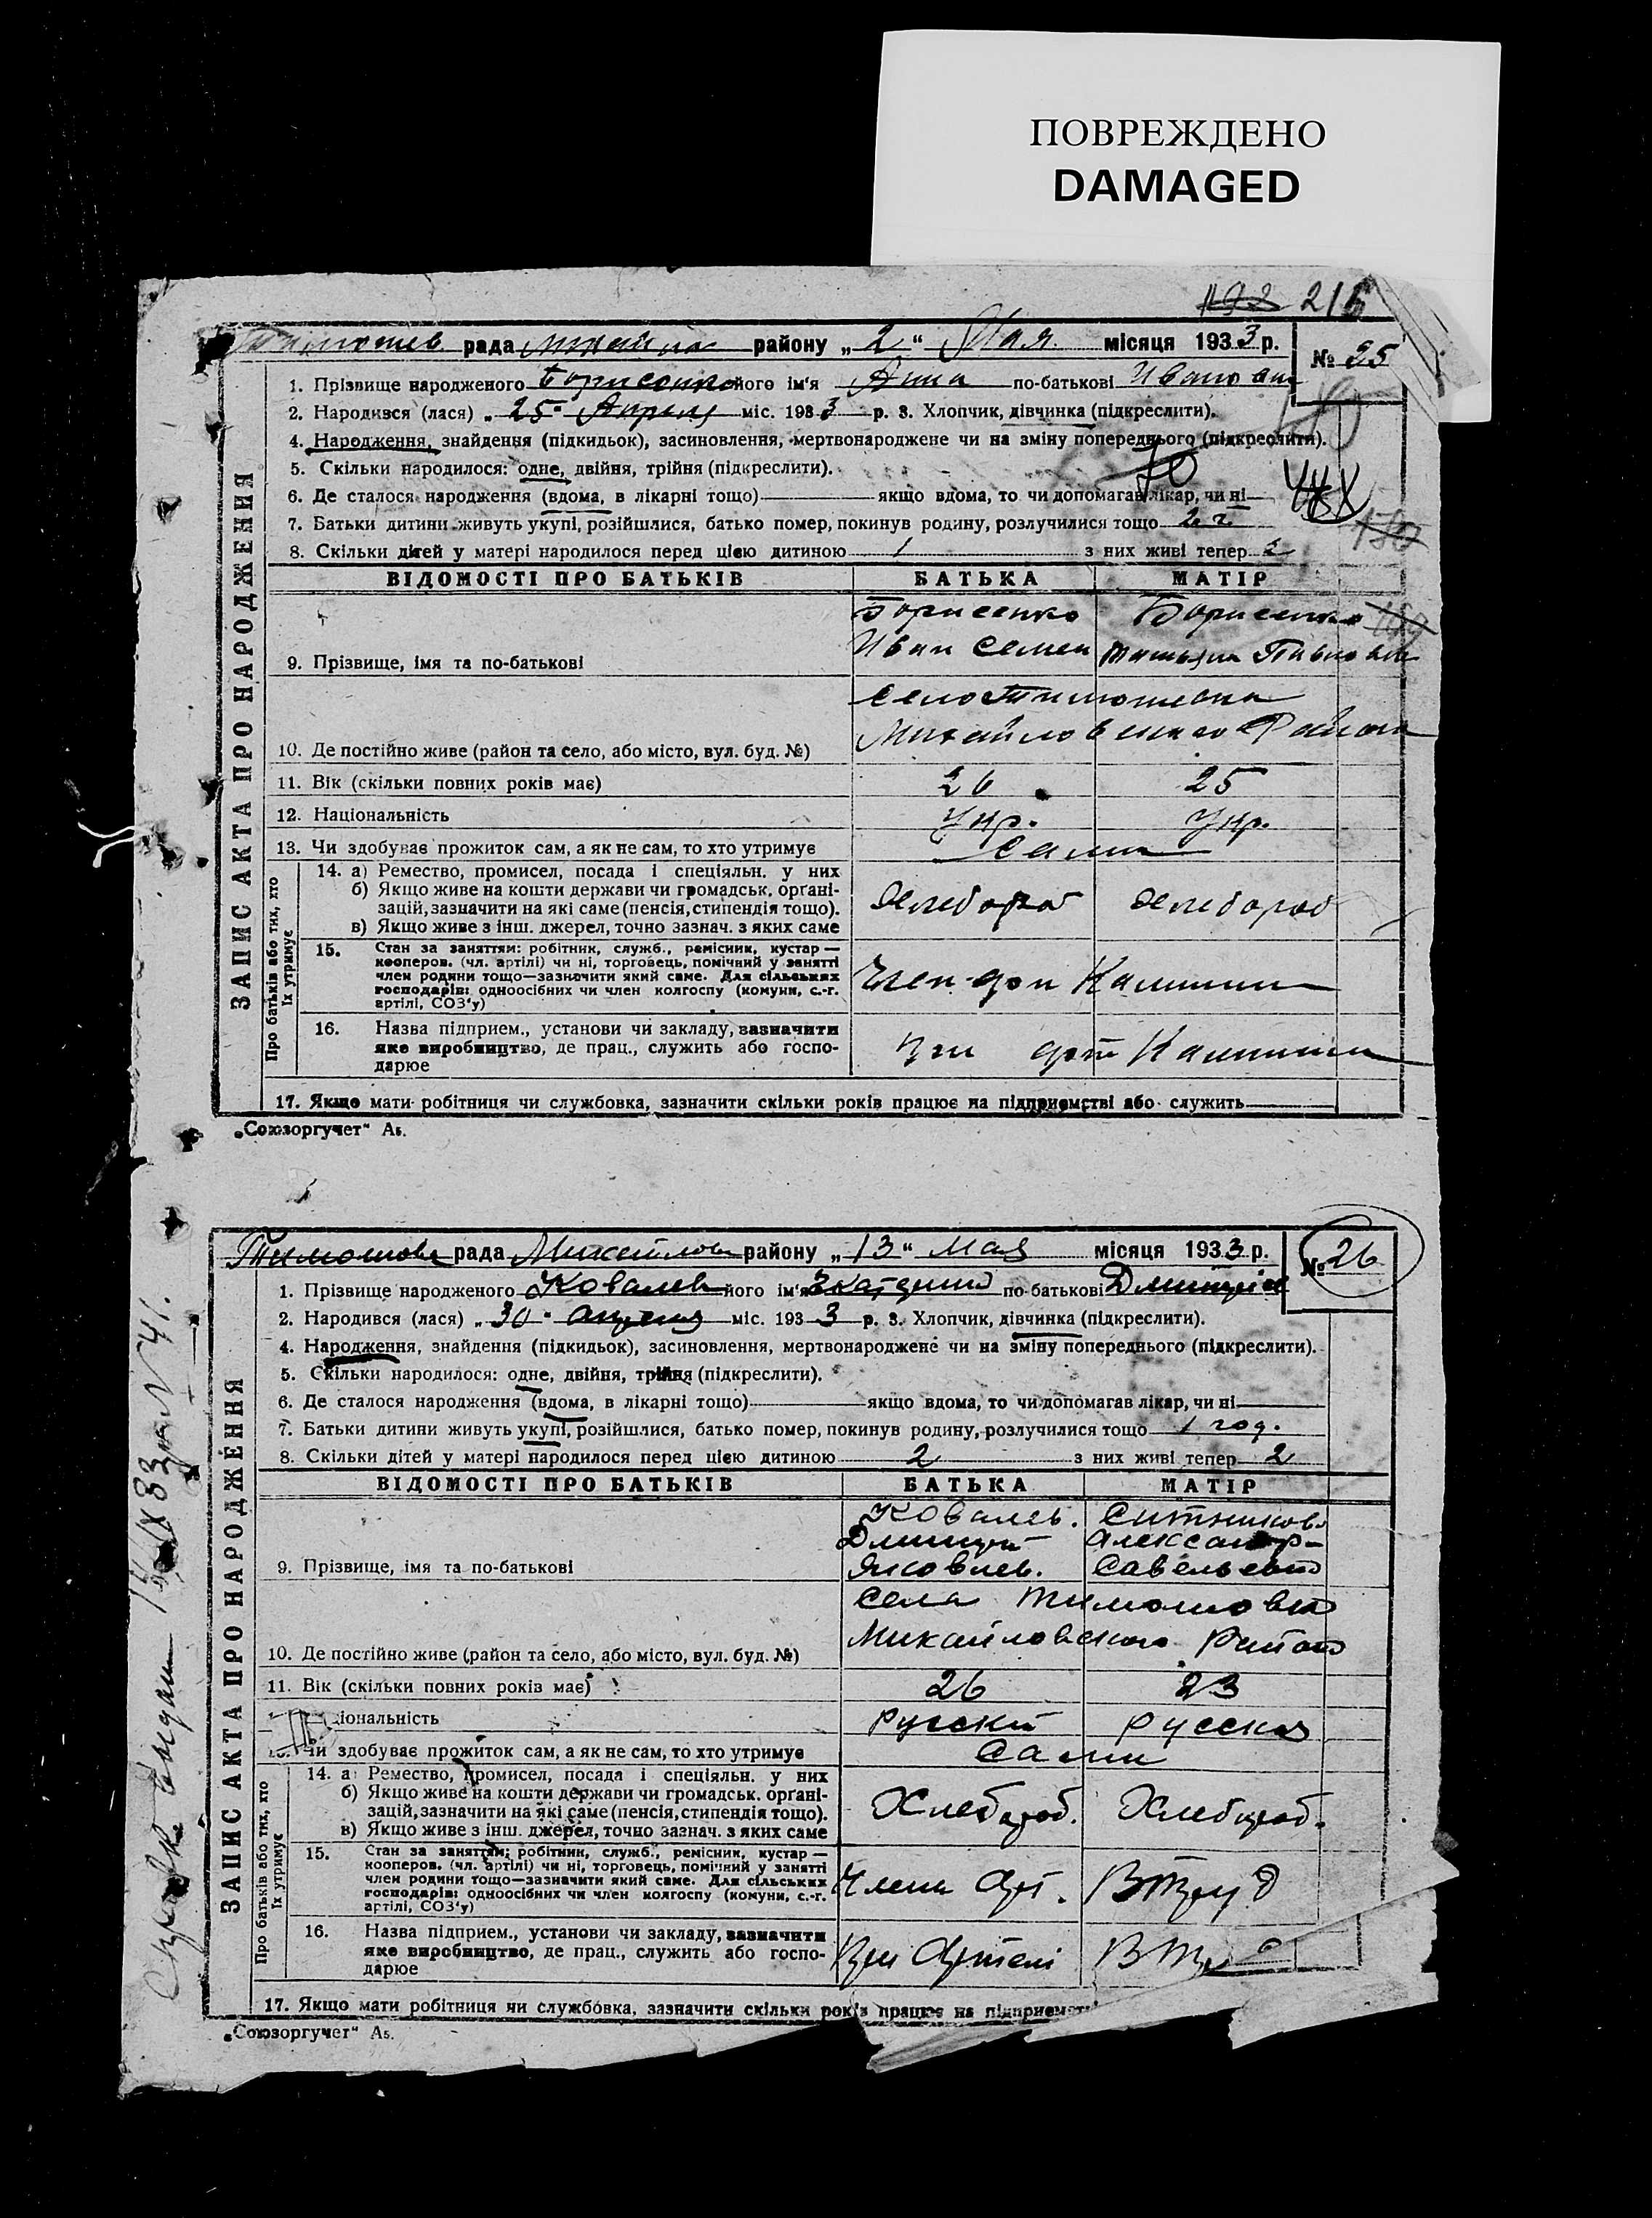 ПОВРЕЖДЕНО
DAMAGED
215
Тимошев. рада Михайлов району „2“ Мая місяця 1933 р. № 25
1. Прізвище народженого Борисенко його ім'я Анна по-батькові Ивановна
2. Народився (лася) „25“ Апреля міс. 1933 р. 3. Хлопчик, дівчинка (підкреслити).
4. Народження, знайдення (підкидьок), засиновлення, мертвонароджене чи на зміну попереднього (підкреслити).
5. Скільки народилося: одне, двійня, трійня (підкреслити).
6. Де сталося народження (вдома, в лікарні тощо) якщо вдома, то чи допомагав лікар, чи ні
7. Батьки дитини живуть укупі, розійшлися, батько помер, покинув родину, розлучилися тощо 2 г.
8. Скільки дітей у матері народилося перед цією дитиною 1 з них живі тепер 2
ВІДОМОСТІ ПРО БАТЬКІВ БАТЬКА МАТІР
Борисенко Борисенко
9. Прізвище, імя та по-батькові Иван Семен Татьяна
село Тимошевка
10. Де постійно живе (район та село, або місто, вул. буд. №) Михайловского Района
11. Вік (скільки повних років має) 26 25
12. Національність Укр. Укр.
13. Чи здобуває прожиток сам, а як не сам, то хто утримує сами
14. а) Ремество, промисел, посада і спеціяльн. у них
б) Якщо живе на кошти держави чи громадськ. орґані-
зацій, зазначити на які саме (пенсія, стипендія тощо).
в) Якщо живе з інш. джерел, точно зазнач. з яких саме
Хлебороб Хлебороб
15. Стан за заняттям: робітник, служб., ремісник, кустар —
кооперов. (чл. артілі) чи ні, торговець, помічний у занятті
член родини тощо—зазначити який саме. Для сільських
господарів: одноосібних чи член колгоспу (комуни, с.-г.
артілі, СОЗ'у)
Член арт Калинина
16. Назва підприєм., установи чи закладу, зазначити
яке виробництво, де прац., служить або госпо-
дарює
при арт Калинина
17. Якщо мати робітниця чи службовка, зазначити скільки років працює на підприємстві або служить
Про батьків або тих, хто
їх утримує
ЗАПИС АКТА ПРО НАРОДЖЕННЯ
„Союзоргучет“ А5.
Тимошовс рада Михайлов району „13“ Мая місяця 1933 р. № 26
1. Прізвище народженого Ковалев його ім'я Екатерина по-батькові Дмитрiев
2. Народився (лася) „30“ апреля міс. 1933 р. 3. Хлопчик, дівчинка (підкреслити).
4. Народження, знайдення (підкидьок), засиновлення, мертвонароджене чи на зміну попереднього (підкреслити).
5. Скільки народилося: одне, двійня, трійня (підкреслити).
6. Де сталося народження (вдома, в лікарні тощо) якщо вдома, то чи допомагав лікар, чи ні
7. Батьки дитини живуть укупі, розійшлися, батько помер, покинув родину, розлучилися тощо 1 год.
8. Скільки дітей у матері народилося перед цією дитиною 2 з них живі тепер 2
ВІДОМОСТІ ПРО БАТЬКІВ БАТЬКА МАТІР
Ковалев. Ситникова
Дмитрий Александр-
9. Прізвище, імя та по-батькові Яковлев. Савельевна
Села Тимошовка
10. Де постійно живе (район та село, або місто, вул. буд. №) Михайловского Района
11. Вік (скільки повних років має) 26 23
ціональність Русский Русская
Чи здобуває прожиток сам, а як не сам, то хто утримує Сами
14. а) Ремество, промисел, посада і спеціяльн. у них
б) Якщо живе на кошти держави чи громадськ. орґані-
зацій, зазначити на які саме (пенсія, стипендія тощо).
в) Якщо живе з інш. джерел, точно зазнач. з яких саме
Хлебороб. Хлебороб.
15. Стан за заняттям: робітник, служб., ремісник, кустар —
кооперов. (чл. артілі) чи ні, торговець, помічний у занятті
член родини тощо—зазначити який саме. Для сільських
господарів: одноосібних чи член колгоспу (комуни, с.-г.
артілі, СОЗ'у)
Члена Арт.
16. Назва підприєм., установи чи закладу, зазначити
яке виробництво, де прац., служить або госпо-
дарює
При Артели
17. Якщо мати робітниця чи службовка, зазначити скільки років працює на підприємст
Про батьків або тих, хто
їх утримує
ЗАПИС АКТА ПРО НАРОДЖЕННЯ
„Союзоргучет“ А5.